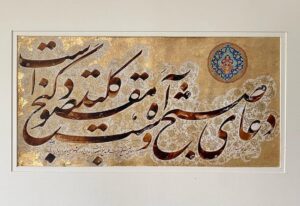 دعای صبح و آه شب کلید گنج مقصود است